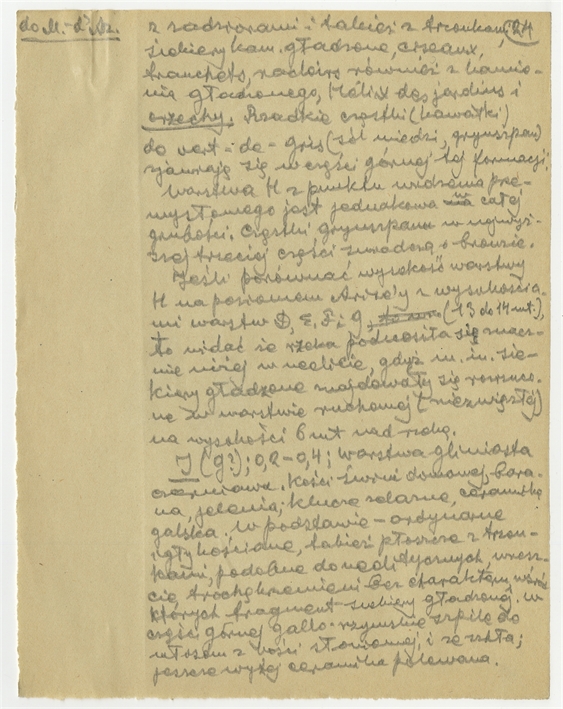 do M.-d'Az.
24
z zadziorami i takież z trzonkom,
siekiery kam. gładzone, ciseaux,
tranchets, racloirs również z kamie-
nia gładzonego, Hélix des jardins i
orzechy. Rzadkie cząstki (kawałki)
de vert-de-gris (sól miedzi, grynszpan)
zjawiają się w części górnej tej formacji.
Warstwa H z punktu widzenia prze-
mysłowego jest jednakowa w całej
grubości. Cząstki grynszpanu w najwyż-
szej trzeciej części świadczą o bronzie.
Jeśli porównać wysokość warstwy
H na poziomem Arize'y z wysokościa-
mi warstw D, E, F i g, (13 do 14 mt.),
to widać że rzeka podnosiła się znacz-
nie niżej w neolicie, gdyż m. in. sie-
kiery gładzone znajdowały się rozrzuco-
ne w warstwie ruchomej (niezwięzłej)
na wysokości 6 mt nad rzeką.
J (g?); 0,2–0,4; warstwa gliniasta
czerniawa. Kości świni domowej, bara-
na, jelenia; klucze żelazne, ceramika
galska, w podstawie – ordynarne
igły kościane, takież ptoszcze z trzon-
kami, podobne do neolitycznych, wresz-
cie trochę krzemieni bez charakteru, wśród
których fragment siekiery gładzonej. W
części górnej gallo-rzymskie szpile do
włosów z kości słoniowej, i ze szkła;
jeszcze wyżej ceramika polewana.